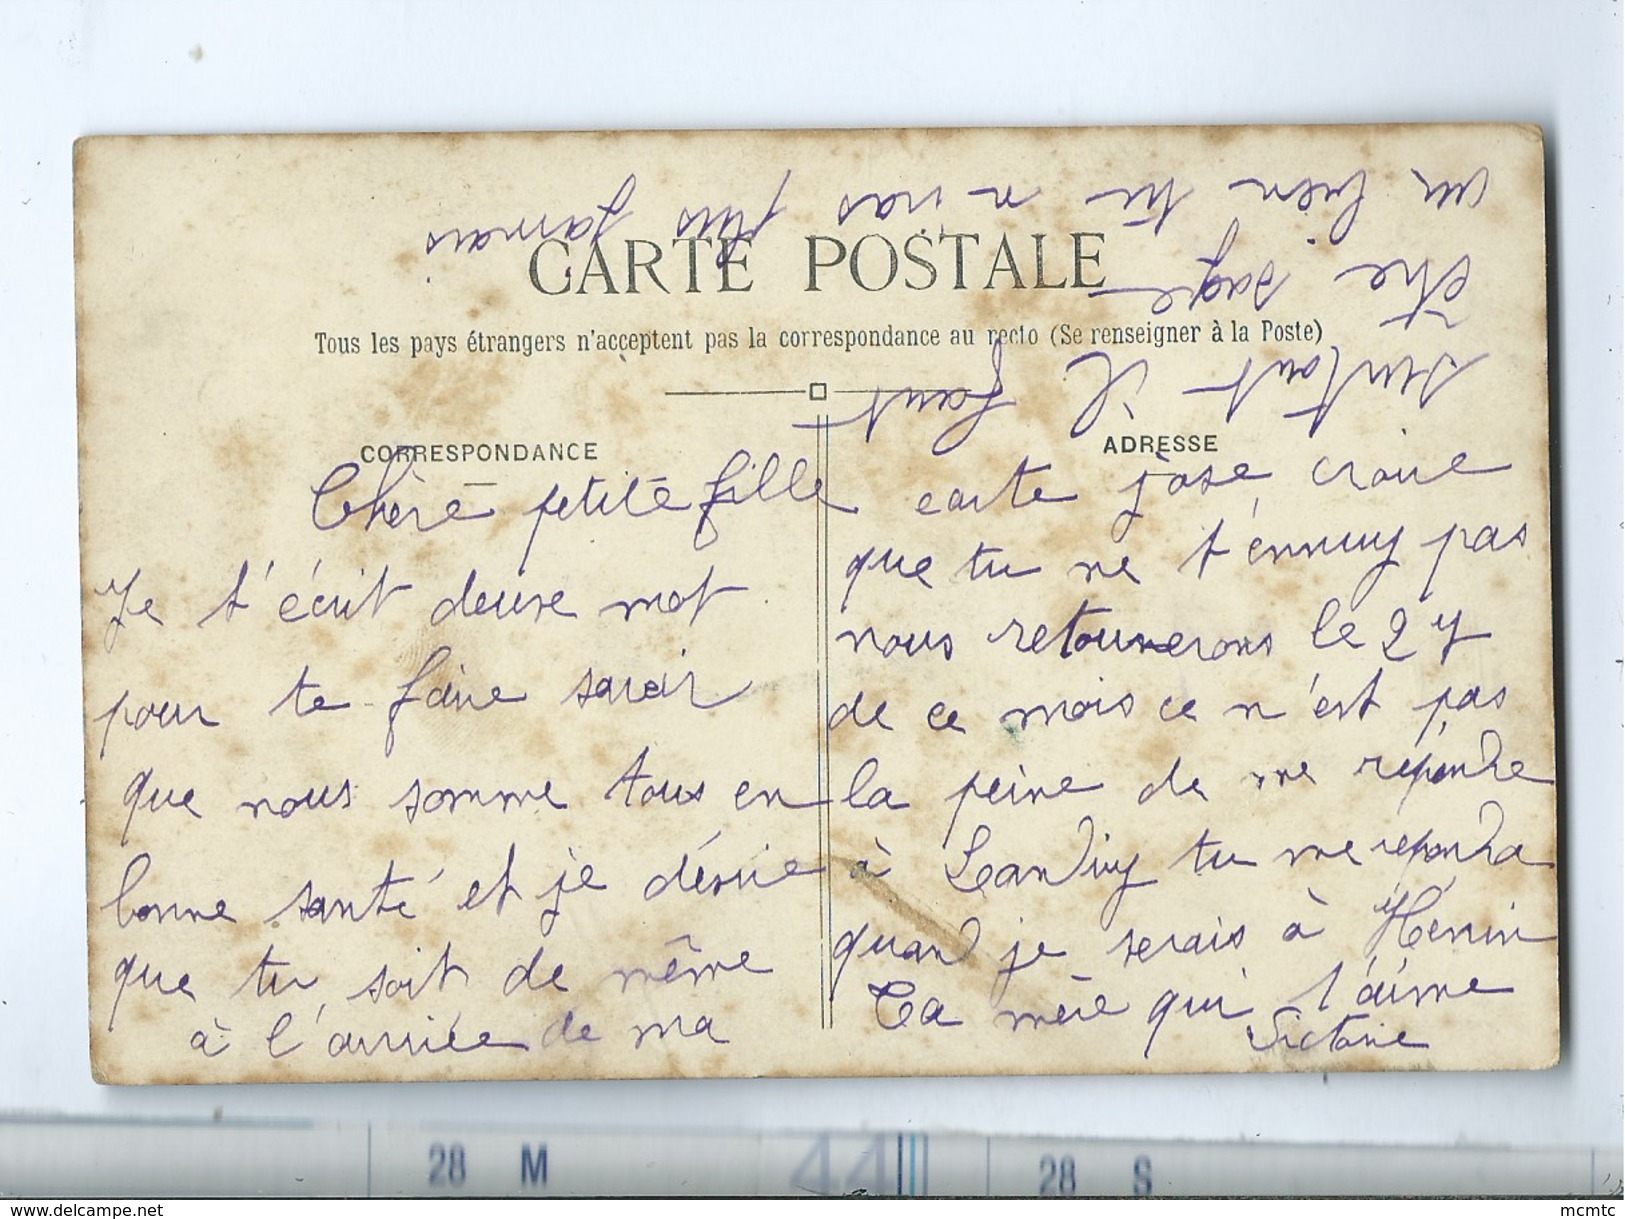 CARTE POSTALE
Tous les pays étrangers n'acceptent pas la correspondance au recto (Se renseigner à la Poste)
CORRESPONDANCE
Chère petite fille
Je t'écrit deuxe mot
pour te faire savoir
que nous somme tous en
bonne santé et je désire
que tu soit de même
à l'arrivée de ma
ADRESSE
carte j'ose croire
que tu ne t'ennuy pas
nous retournerons le 27
de ce mois ce n'est pas
la peine de me répondre
à Landivy tu me repondra
quand je serais à Hénin
Ta mère qui t'aime
Victorie
surtout il faut
être sage
ou bien tu n vas plus jamais
28 M
44
28 S
delcampe.net
mcmtc